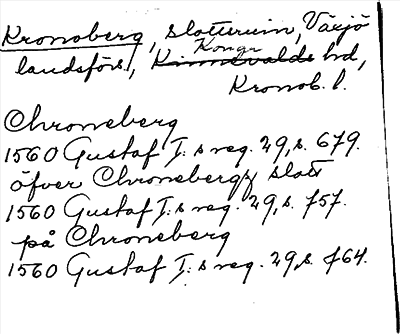 Kronoberg, slottsruin, Växjö
landsförs., Kinnevalds Konga hd,
Kronob. l.
Chroneberg
1560 Gustaf I:s reg. 29, s. 679.
öfver Chronebergz slott
1560 Gustaf I:s reg. 29, s. 757.
på Chroneberg
1560 Gustaf I:s reg. 29, s. 764.